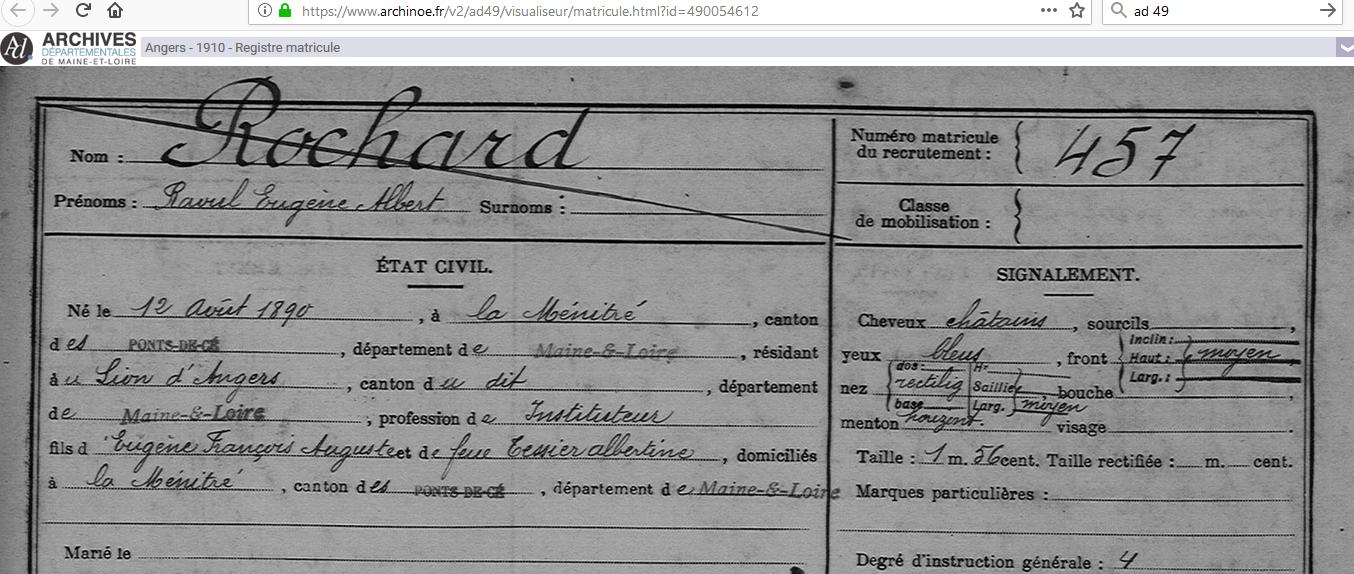 https://www.archinoe.fr/v2/ad49/visualiseur/matricule.html?id=490054612
ad 49
Ad ARCHIVES
DÉPARTEMENTALES
DE MAINE-ET-LOIRE
Angers - 1910 - Registre matricule
Nom : Rochard
Prénoms : Raoul Eugène Albert Surnoms :
Numéro matricule
du recrutement : 457
Classe
de mobilisation :
ÉTAT CIVIL.
Né le 12 Août 1890, à la Ménitré, canton
des PONTS-DE-CÉ, département de Maine-&-Loire, résidant
à u Lion d'Angers, canton du dit, département
de Maine-&-Loire, profession de Instituteur
fils d'Eugène François Auguste et de feue Tessier albertine, domiciliés
à la Ménitré, canton des PONTS-DE-CÉ, département de Maine-&-Loire
Marié le
SIGNALEMENT.
Cheveux châtains, sourcils,
yeux bleus, front Inclin: Haut: Larg.: moyen
nez dos: rectilig base horizont. Hr Saillie Larg. moyen bouche,
menton visage.
Taille : 1 m. 56 cent. Taille rectifiée : m. cent.
Marques particulières :
Degré d'instruction générale : 4